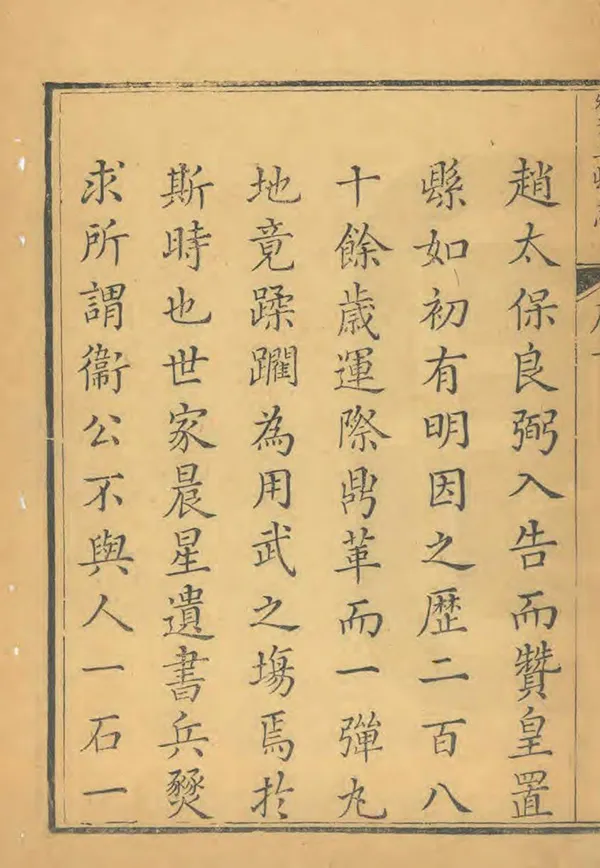 趙太保良弼入告而贊皇置
縣如初有明因之歷二百八
十餘歲運際鼎革而一彈丸
地竟蹂躙為用武之場焉於
斯時也世家晨星遺書兵燹
求所謂衞公不與人一石一